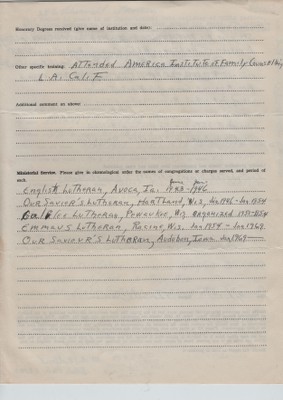 Honorary Degrees received (give name of institution and date):
Other specific training: Attended America Institute of Family Counseling
L.A. Calif
Additional nutriant as above:
Ministerial Service. Please give in chronological order the names of congregations or charges served, and period of each.
June June
English Lutheran, Avoca, Ia. 1943-1946
Our Savior's Lutheran, Hartland, Wis, Jun 1946 - Jan 1954
Galilee Lutheran, Pewaukee, Wis. Organized 1951-1954
Emmaus Lutheran, Racine, Wis. Jan 1954 - Jan 1969.
Our Saviour's Lutheran, Audubon, Iowa Jan 1969